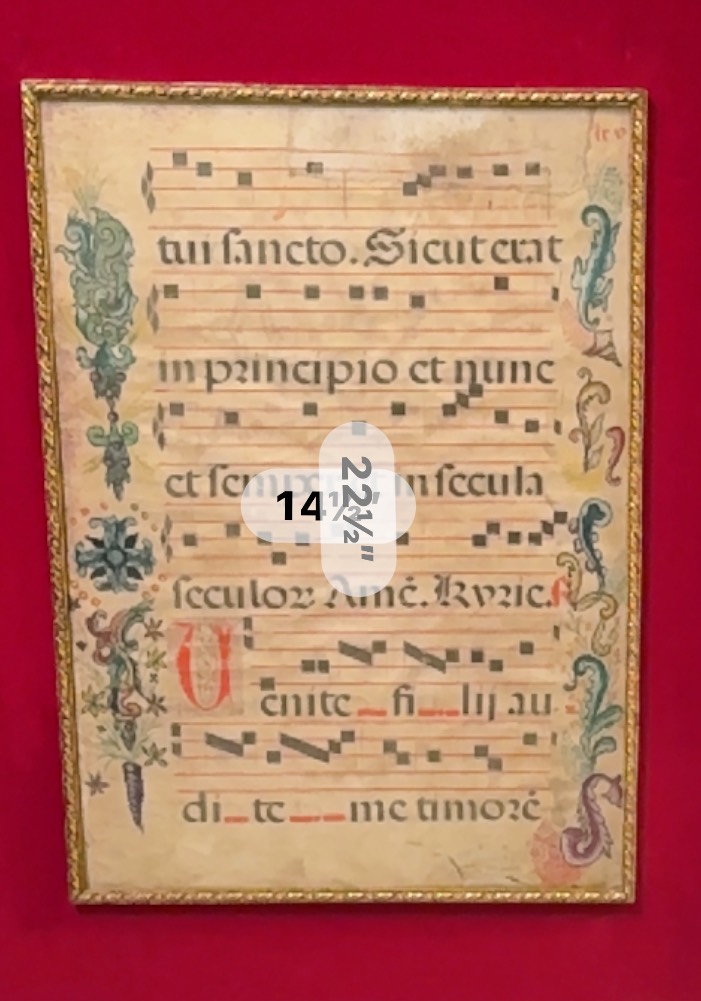 tui sancto. Sicut erat
in principio et nunc
et in secula
seculoꝝ Amē. Kyrie.
Venite fi lij au
di te me timorē
14½"
22½"